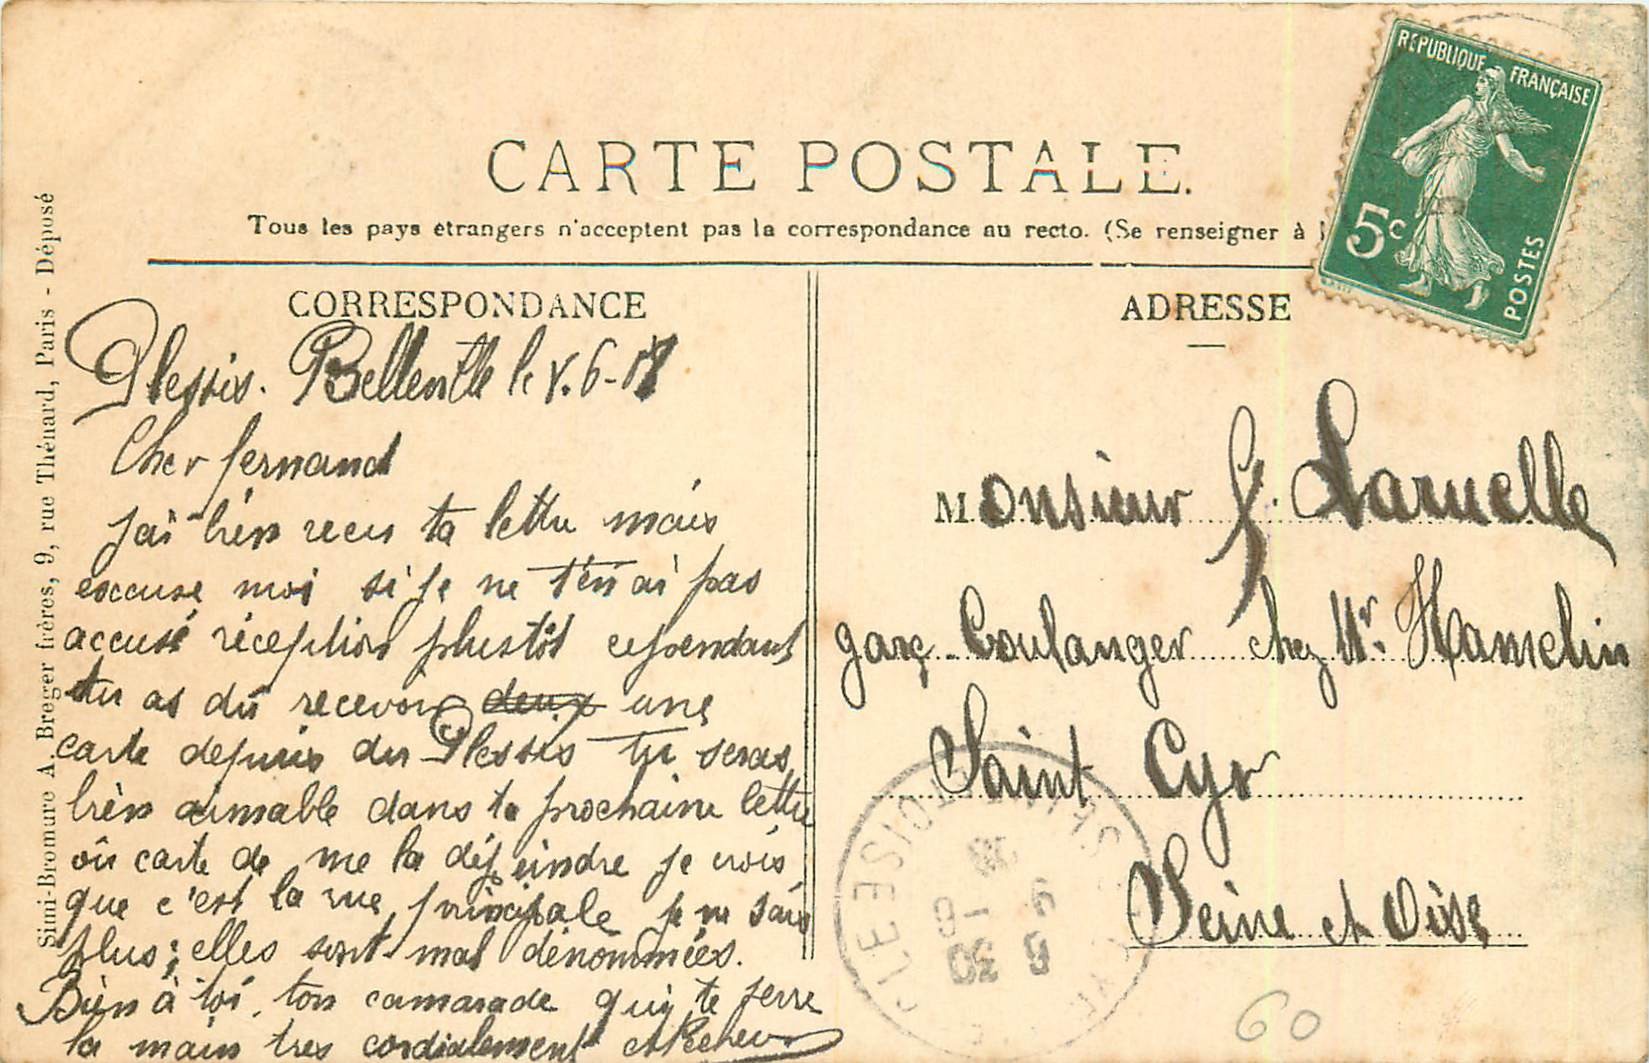 CARTE POSTALE.
Tous les pays étrangers n'acceptent pas la correspondance au recto. (Se renseigner à
CORRESPONDANCE
Plessis-Belleville le 8.6-
Cher fernand
J'ai bien recu ta lettre mais
excuse moi si je ne t'en ai pas
accusé réception plustôt cependant
tu as du recevoir deux une
carte depuis du Plessis tu seras
bien aimable dans ta prochaine lettre
où carte de me la dépeindre je crois
que c'est la rue principale je ne sais
plus; elles sont mal dénommées.
Bien à toi, ton camarade qui te serre
la main tres cordialement
ADRESSE
Monsieur F. Laruelle
garç. Boulanger chez Mr. Hamelin
Saint Cyr
Seine et Oise
REPUBLIQUE FRANÇAISE
5c
POSTES
Simi-Bromure A. Breger frères, 9, rue Thénard, Paris - Déposé
60